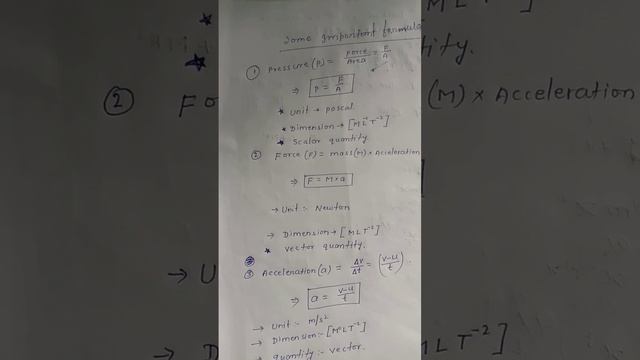 Some important formula
① Pressure (P) = Force/Area = F/A
⇒ P = F/A
* Unit → pascal
* Dimension → [ML⁻¹T⁻²]
* Scalar quantity.
② Force (F) = mass(M) × Acceleration
⇒ F = M×a
→ Unit :- Newton
→ Dimension → [MLT⁻²]
* vector quantity.
③ Acceleration (a) = Δv/Δt = (v-u/t)
⇒ a = v-u/t
→ Unit :- m/s²
→ Dimension :- [M⁰LT⁻²]
→ quantity :- vector.